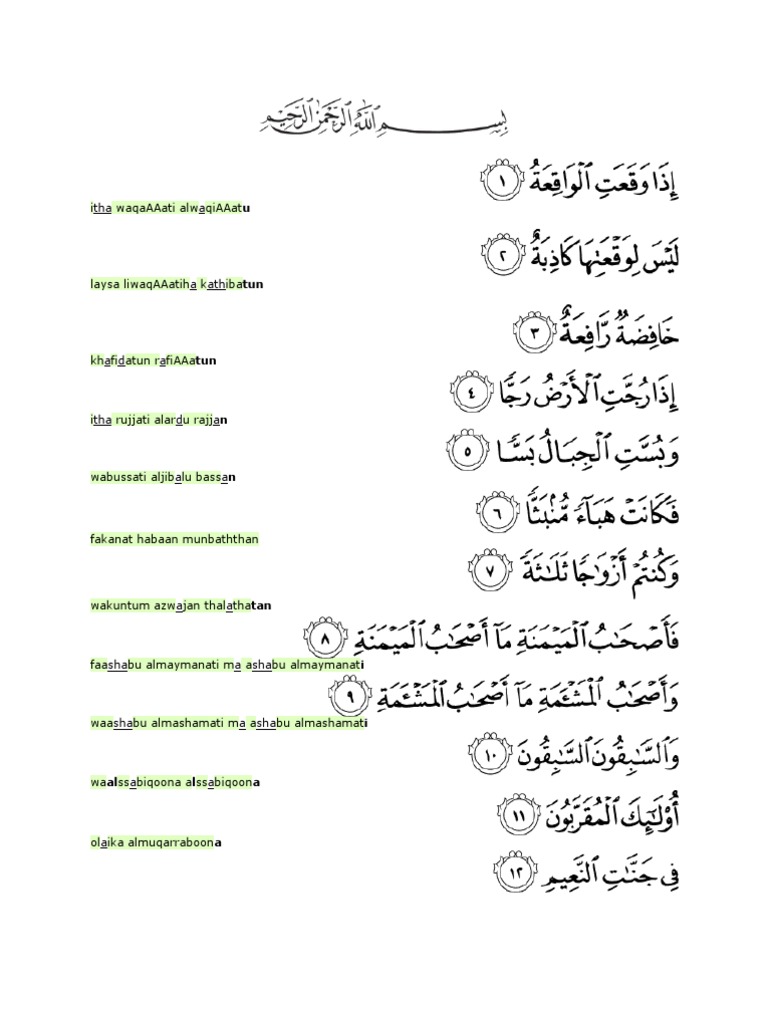 بِسْمِ ٱللَّهِ ٱلرَّحْمَٰنِ ٱلرَّحِيمِ
إِذَا وَقَعَتِ ٱلْوَاقِعَةُ ١
itha waqaAAati alwaqiAAatu
لَيْسَ لِوَقْعَتِهَا كَاذِبَةٌ ٢
laysa liwaqAAatiha kathibatun
خَافِضَةٌ رَّافِعَةٌ ٣
khafidatun rafiAAatun
إِذَا رُجَّتِ ٱلْأَرْضُ رَجًّا ٤
itha rujjati alardu rajjan
وَبُسَّتِ ٱلْجِبَالُ بَسًّا ٥
wabussati aljibalu bassan
فَكَانَتْ هَبَآءً مُّنۢبَثًّا ٦
fakanat habaan munbaththan
وَكُنتُمْ أَزْوَٰجًا ثَلَٰثَةً ٧
wakuntum azwajan thalathatan
فَأَصْحَٰبُ ٱلْمَيْمَنَةِ مَآ أَصْحَٰبُ ٱلْمَيْمَنَةِ ٨
faashabu almaymanati ma ashabu almaymanati
وَأَصْحَٰبُ ٱلْمَشْـَٔمَةِ مَآ أَصْحَٰبُ ٱلْمَشْـَٔمَةِ ٩
waashabu almashamati ma ashabu almashamati
وَٱلسَّٰبِقُونَ ٱلسَّٰبِقُونَ ١٠
waalssabiqoona alssabiqoona
أُو۟لَٰٓئِكَ ٱلْمُقَرَّبُونَ ١١
olaika almuqarraboona
فِى جَنَّٰتِ ٱلنَّعِيمِ ١٢